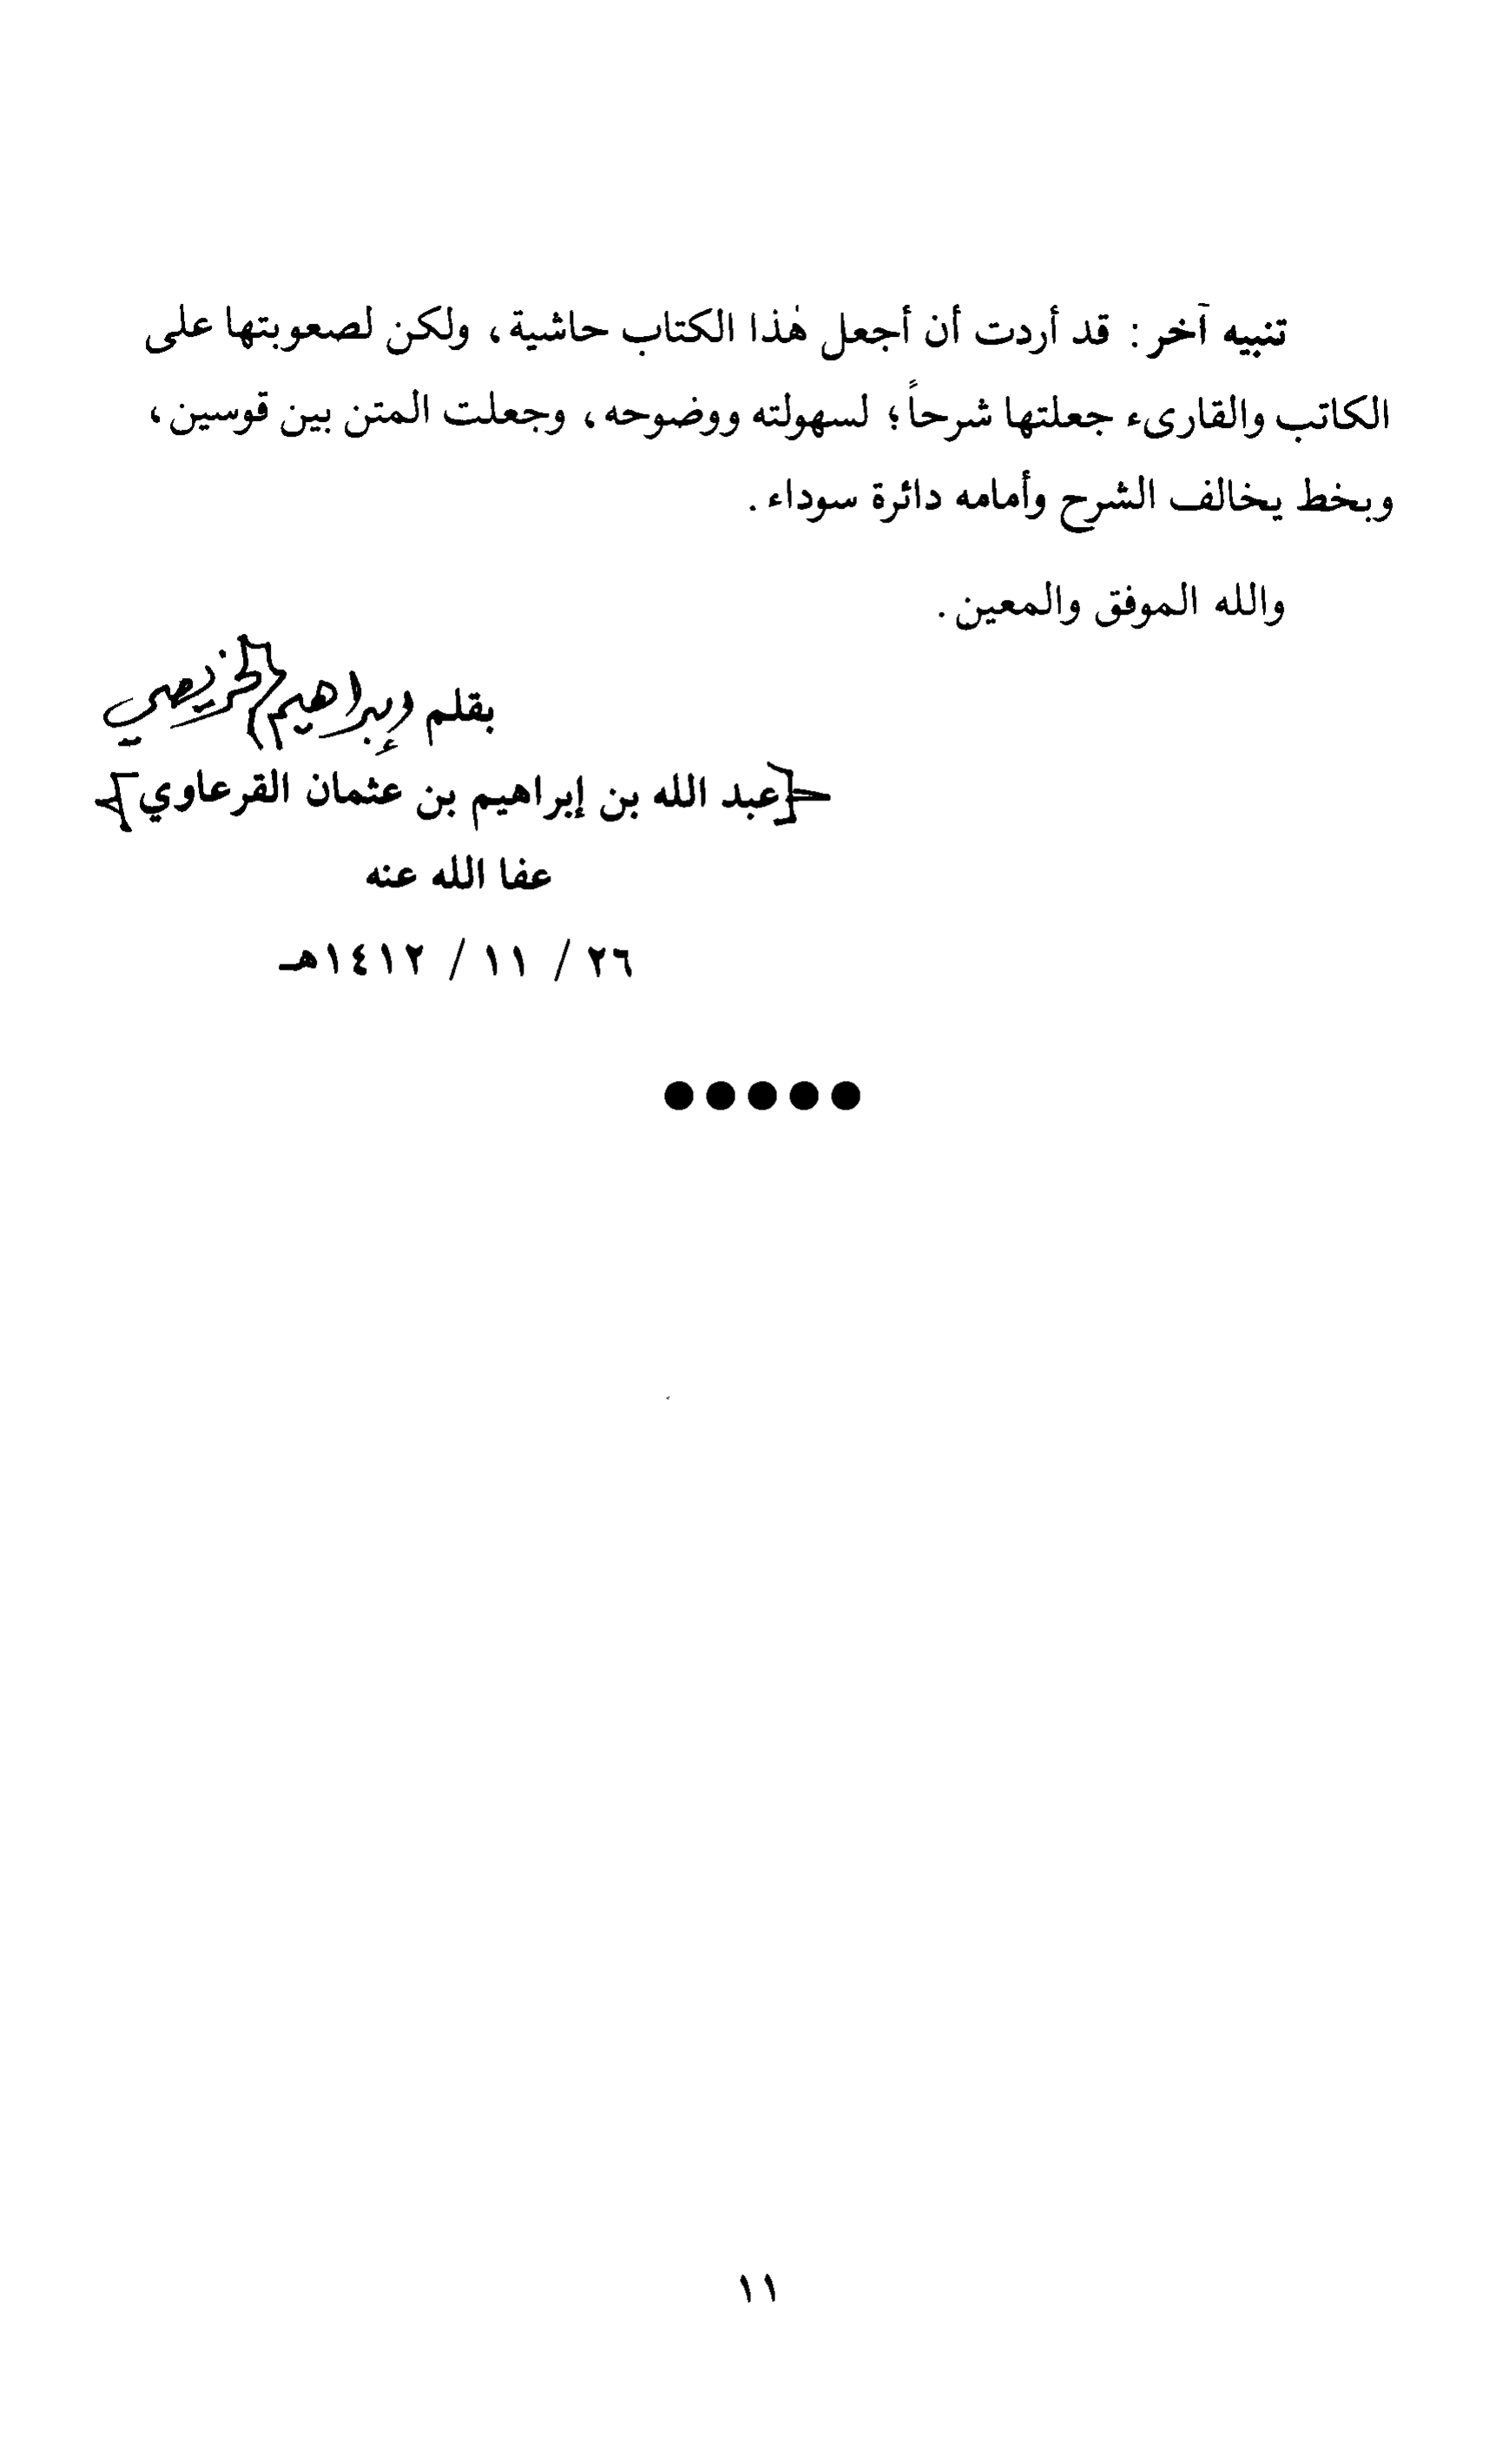 تنبيه آخر: قد أردت أن أجعل هٰذا الكتاب حاشية، ولكن لصعوبتها على
الكاتب والقارىء جعلتها شرحاً؛ لسهولته ووضوحه، وجعلت المتن بين قوسين،
وبخط يخالف الشرح وأمامه دائرة سوداء.
والله الموفق والمعين.
بقلم إبراهيم
[عبد الله بن إبراهيم بن عثمان القرعاوي]
عفا الله عنه
٢٦ / ١١ / ١٤١٢هـ
١١